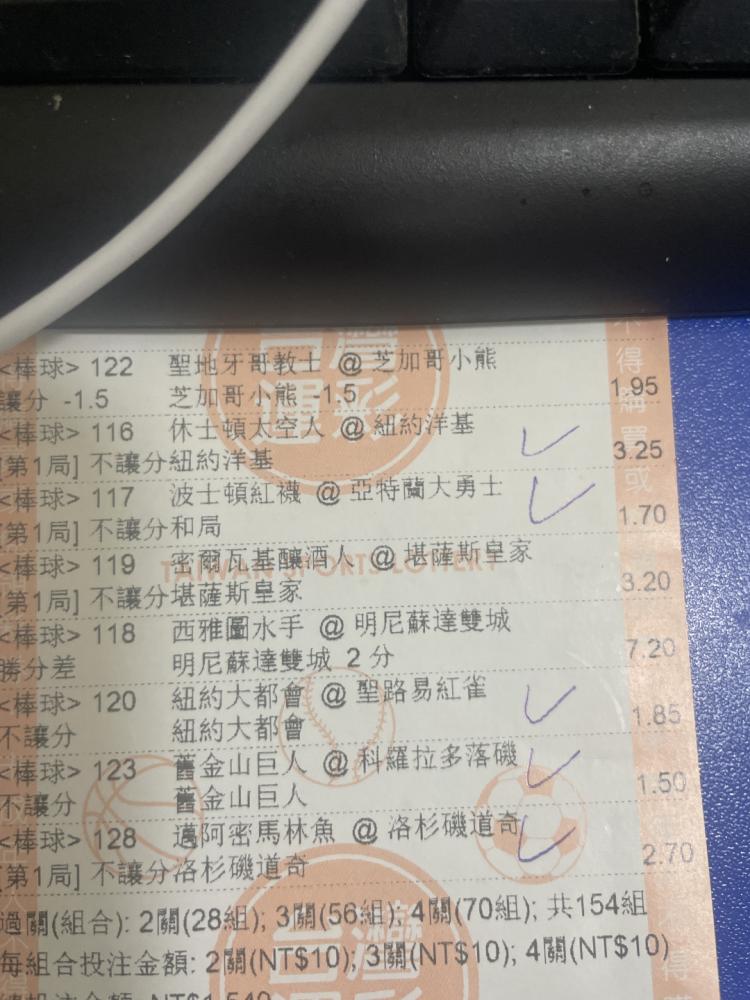 <棒球> 122 聖地牙哥教士 @ 芝加哥小熊
讓分 -1.5 芝加哥小熊 -1.5 1.95
<棒球> 116 休士頓太空人 @ 紐約洋基
[第1局] 不讓分紐約洋基 3.25
<棒球> 117 波士頓紅襪 @ 亞特蘭大勇士
[第1局] 不讓分和局 1.70
<棒球> 119 密爾瓦基釀酒人 @ 堪薩斯皇家
TAIWAN SPORTS LOTTERY
[第1局] 不讓分堪薩斯皇家 3.20
<棒球> 118 西雅圖水手 @ 明尼蘇達雙城
勝分差 明尼蘇達雙城 2 分 7.20
<棒球> 120 紐約大都會 @ 聖路易紅雀
不讓分 紐約大都會 1.85
<棒球> 123 舊金山巨人 @ 科羅拉多落磯
不讓分 舊金山巨人 1.50
<棒球> 128 邁阿密馬林魚 @ 洛杉磯道奇
[第1局] 不讓分洛杉磯道奇 2.70
過關(組合): 2關(28組); 3關(56組); 4關(70組); 共154組
每組合投注金額: 2關(NT$10); 3關(NT$10); 4關(NT$10)
總投注金額: NT$1,540